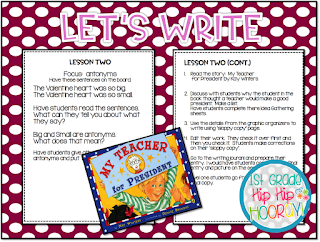 LET'S WRITE
LESSON TWO
Focus: antonyms
Have these sentences on the board.
The Valentine heart was so big.
The Valentine heart was so small.
Have students read the sentences.
What can they tell you about what
they say?
Big and Small are antonyms.
What does that mean?
Have students give
antonyms and put
LESSON TWO (CONT.)
1. Read the story: My Teacher
For President by Kay Winters
2. Discuss with students why the student in the
book thought a teacher would make a good
president. Make a list.
Have students complete the Idea Gathering
sheets.
3. Use the details from the graphic organizers to
write using "sloppy copy" page.
4. Edit their work. They check it over first and
Then you check it. Students make corrections
on their "sloppy copy".
Go to the writing bureau and prepare their
entry. I would have students
entry and picture on the
one students go
MY TEACHER
for PRESIDENT
Kay Winters
1ST GRADE
HIP HIP
HOORAY!